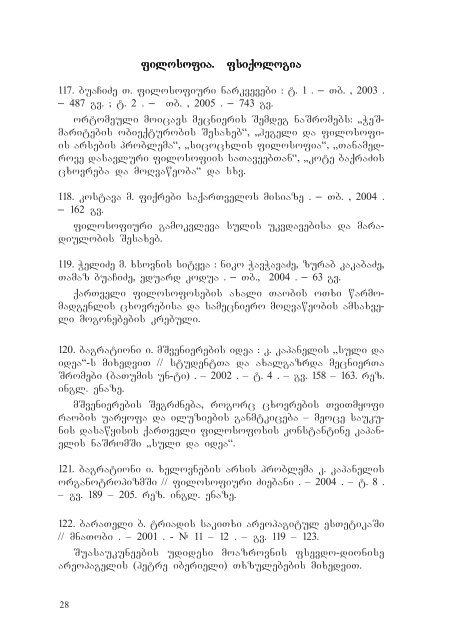 ფილოსოფია. ფსიქოლოგია
117. ბუაჩიძე თ. ფილოსოფიური ნარკვევები : ტ. 1 . – თბ. , 2003 .
– 487 გვ. ; ტ. 2 . – თბ. , 2005 . – 743 გვ.
ორტომეული მოიცავს მეცნიერის შემდეგ ნაშრომებს: „ჭეშ-
მარიტების ობიექტურობის შესახებ“, „ჰეგელი და ფილოსოფი-
ის არსების პრობლემა“, „სიცოცხლის ფილოსოფია“, „თანამედ-
როვე დასავლური ფილოსოფიის სათავეებთან“, „კოტე ბაქრაძის
ცხოვრება და მოღვაწეობა“ და სხვ.
118. კოსტავა მ. ფიქრები საქართველოს მისიაზე . – თბ. , 2004 .
– 162 გვ.
ფილოსოფიური გამოკვლევა სულის უკვდავებისა და მარა-
დიულობის შესახებ.
119. ჭელიძე მ. ხსოვნის სიტყვა : ნიკო ჭავჭავაძე, ზურაბ კაკაბაძე,
თამაზ ბუაჩიძე, ედუარდ კოდუა . – თბ., 2004 . – 63 გვ.
ქართველი ფილოსოფოსების ახალი თაობის ოთხი წარმო-
მადგენლის ცხოვრებისა და სამეცნიერო მოღვაწეობის ამსახვე-
ლი მოგონებების კრებული.
120. ბაგრატიონი ი. მშვენიერების იდეა : კ. კაპანელის „სული და
იდეა“-ს მიხედვით // სტუდენტთა და ახალგაზრდა მეცნიერთა
შრომები (ბათუმის უნ-ტი) . – 2002 . – ტ. 4 . – გვ. 158 – 163. რეზ.
ინგლ. ენაზე.
მშვენიერების შეგრძნება, როგორც ცხოვრების თვითმყოფი
რაობის უარყოფა და ილუზიების განმტკიცება – მეოცე საუკუ-
ნის დასაწყისის ქართველი ფილოსოფოსის კონსტანტინე კაპან-
ელის ნაშრომში „სული და იდეა“.
121. ბაგრატიონი ი. ხელოვნების არსის პრობლემა კ. კაპანელის
ორგანოტროპიზმში // ფილოსოფიური ძიებანი . – 2004 . – ტ. 8 .
– გვ. 189 – 205. რეზ. ინგლ. ენაზე.
122. ბარათელი ბ. ტრიადის საკითხი არეოპაგიტულ ესთეტიკაში
// მნათობი . – 2001 . - № 11 – 12 . – გვ. 119 – 123.
შუასაუკუნეების უდიდესი მოაზროვნის ფსევდო-დიონისე
არეოპაგელის (პეტრე იბერიელი) თხზულებების მიხედვით.
28